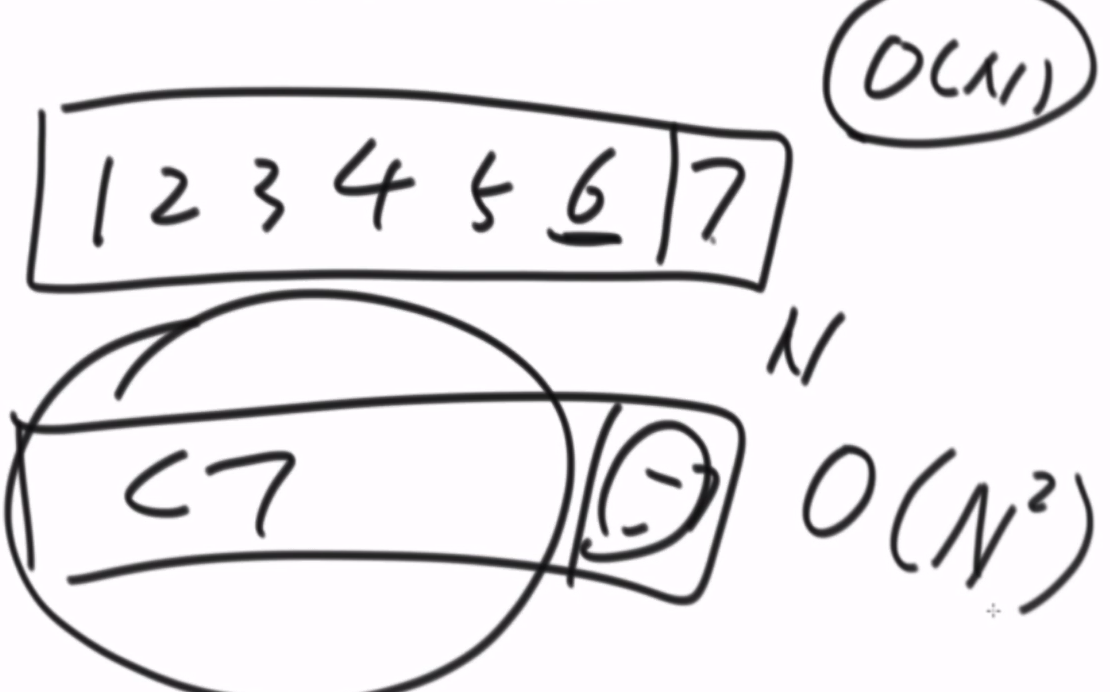 O(N)
1 2 3 4 5 6 7
N
<7
O(N²)